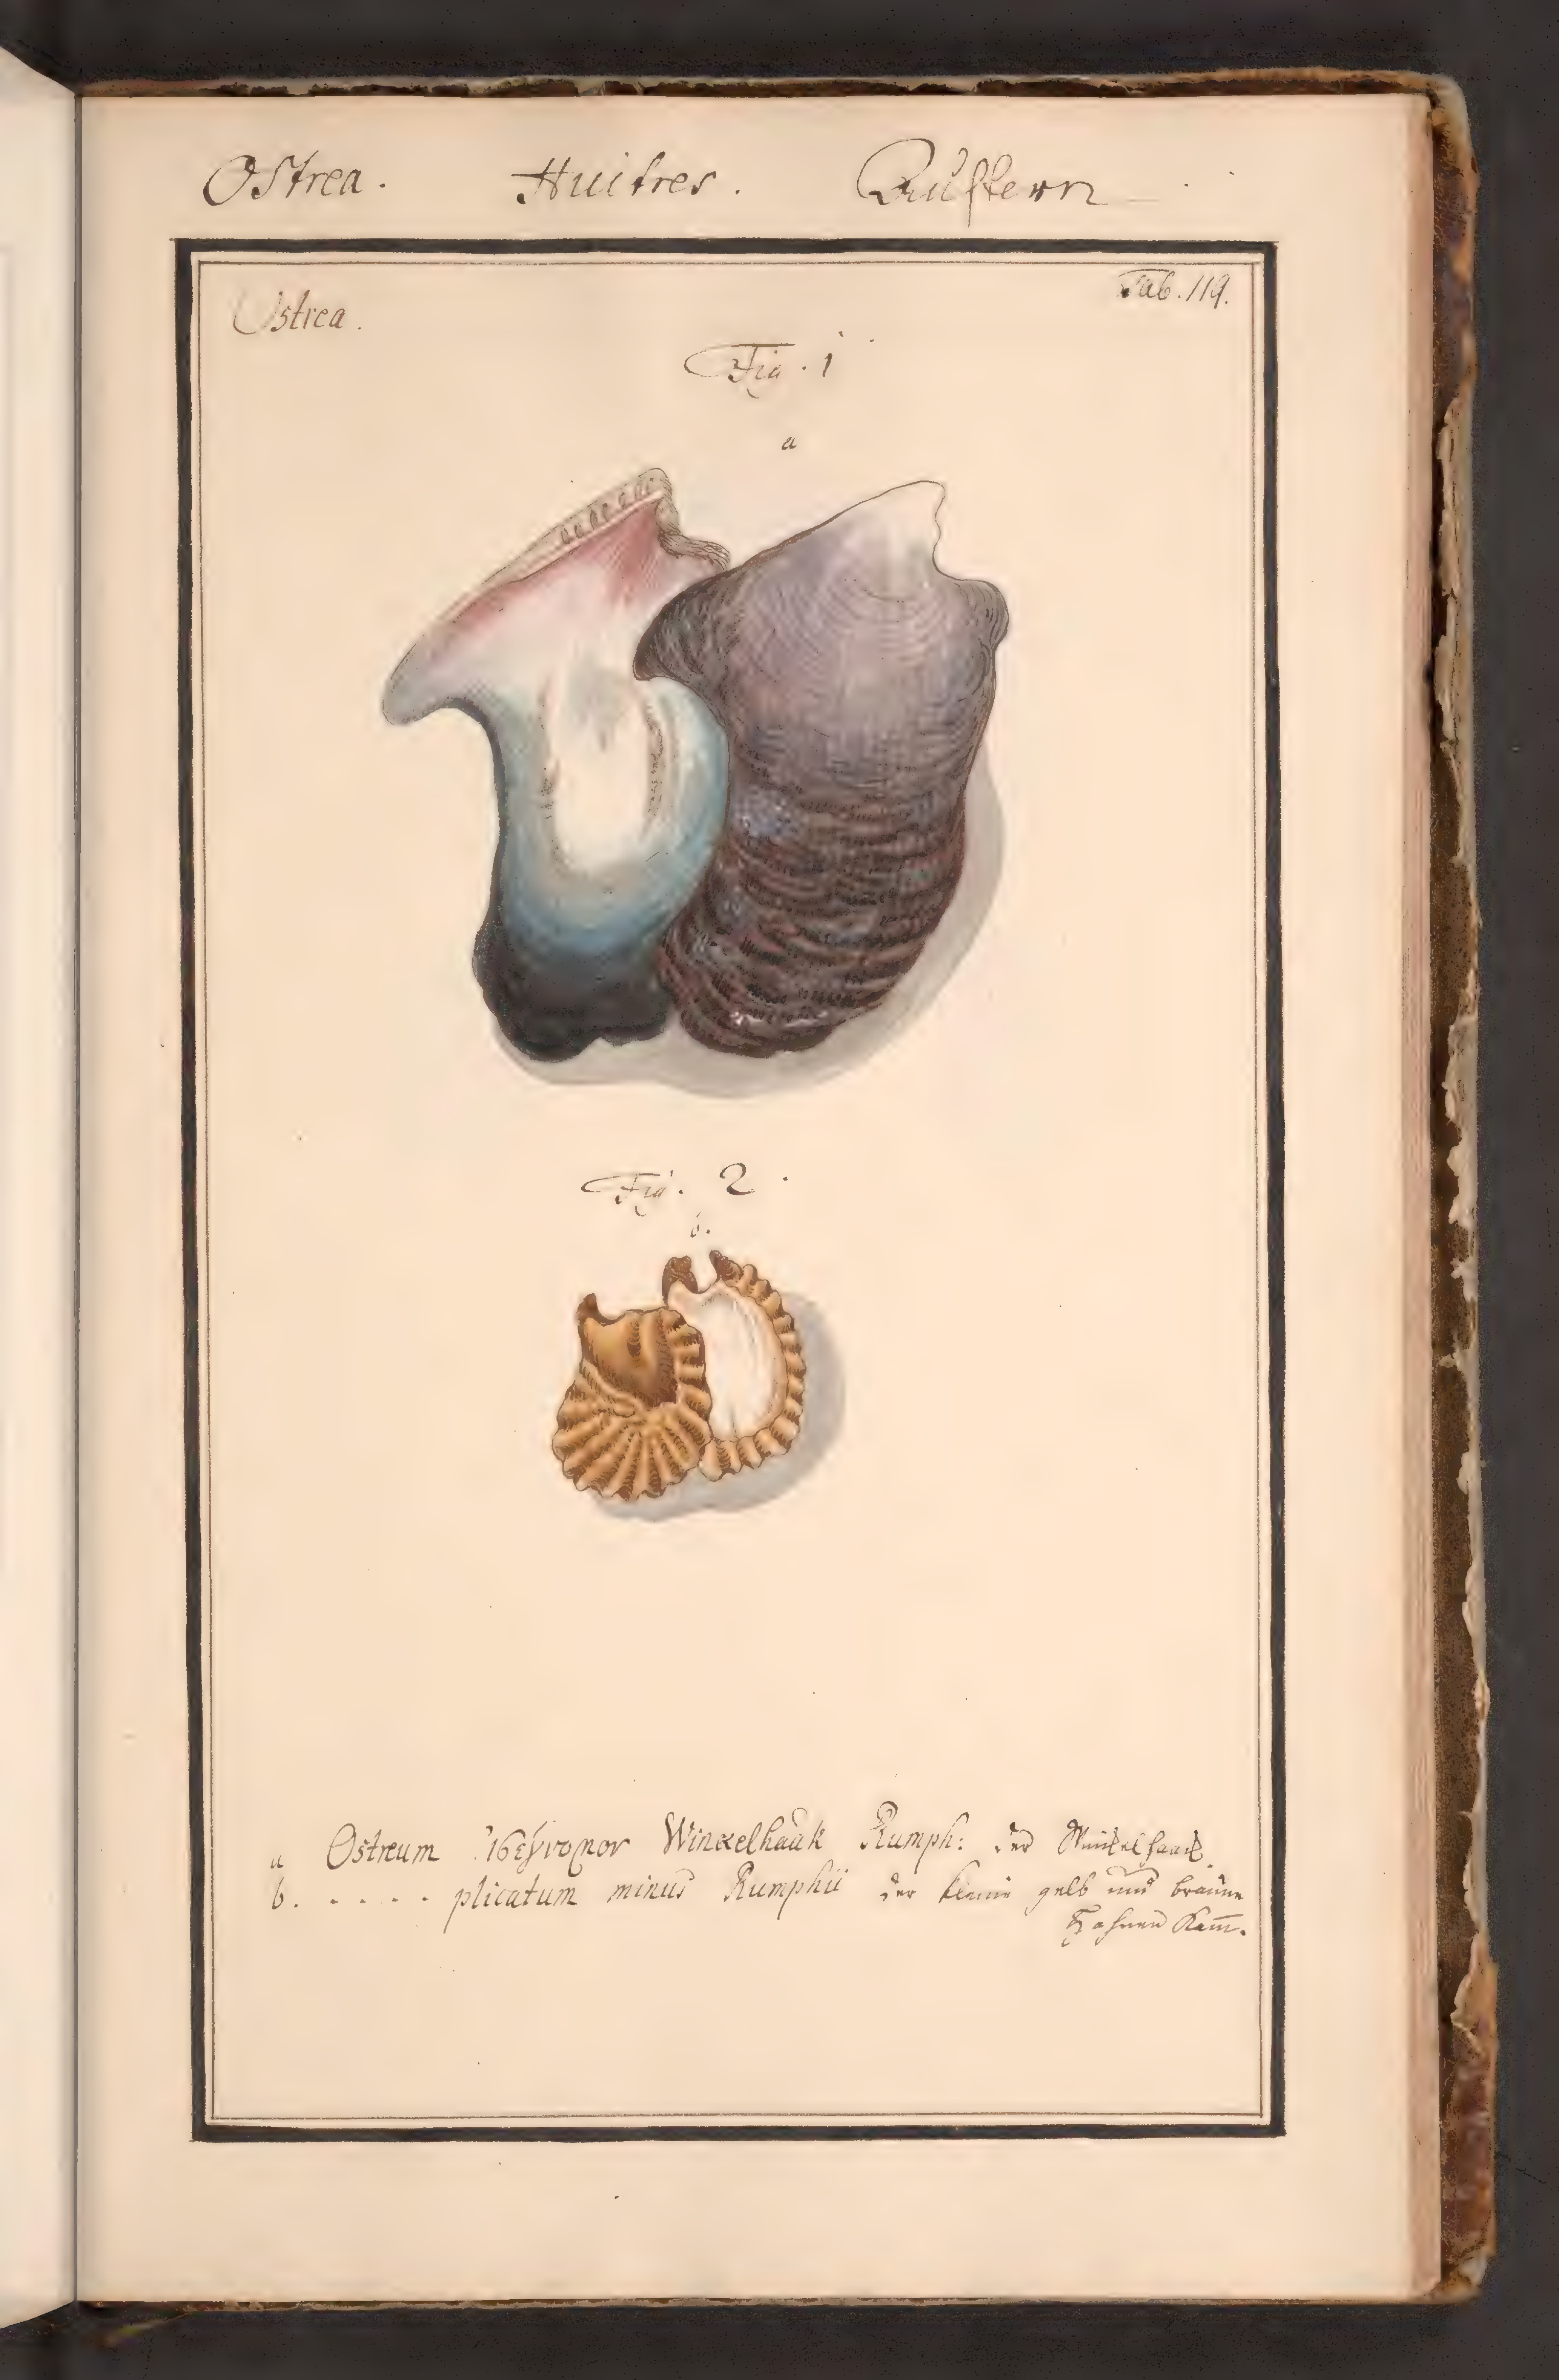 Ostrea. Huitres. Austern
Ostrea. Tab. 119.
Fig. 1
a
Fig. 2.
b.
a Ostreum Winckelhaak Rumph: der Winkelhaack.
b. . . . . plicatum minus Rumphii der kleine gelb und braune
Hahnen Kam̅.